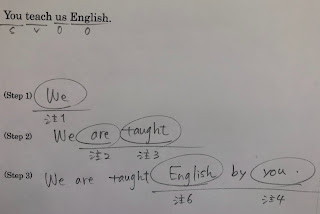 You teach us English.
S V O O
(Step 1) We
注1
(Step 2) We are taught
注2 注3
(Step 3) We are taught English by you.
注6 注4